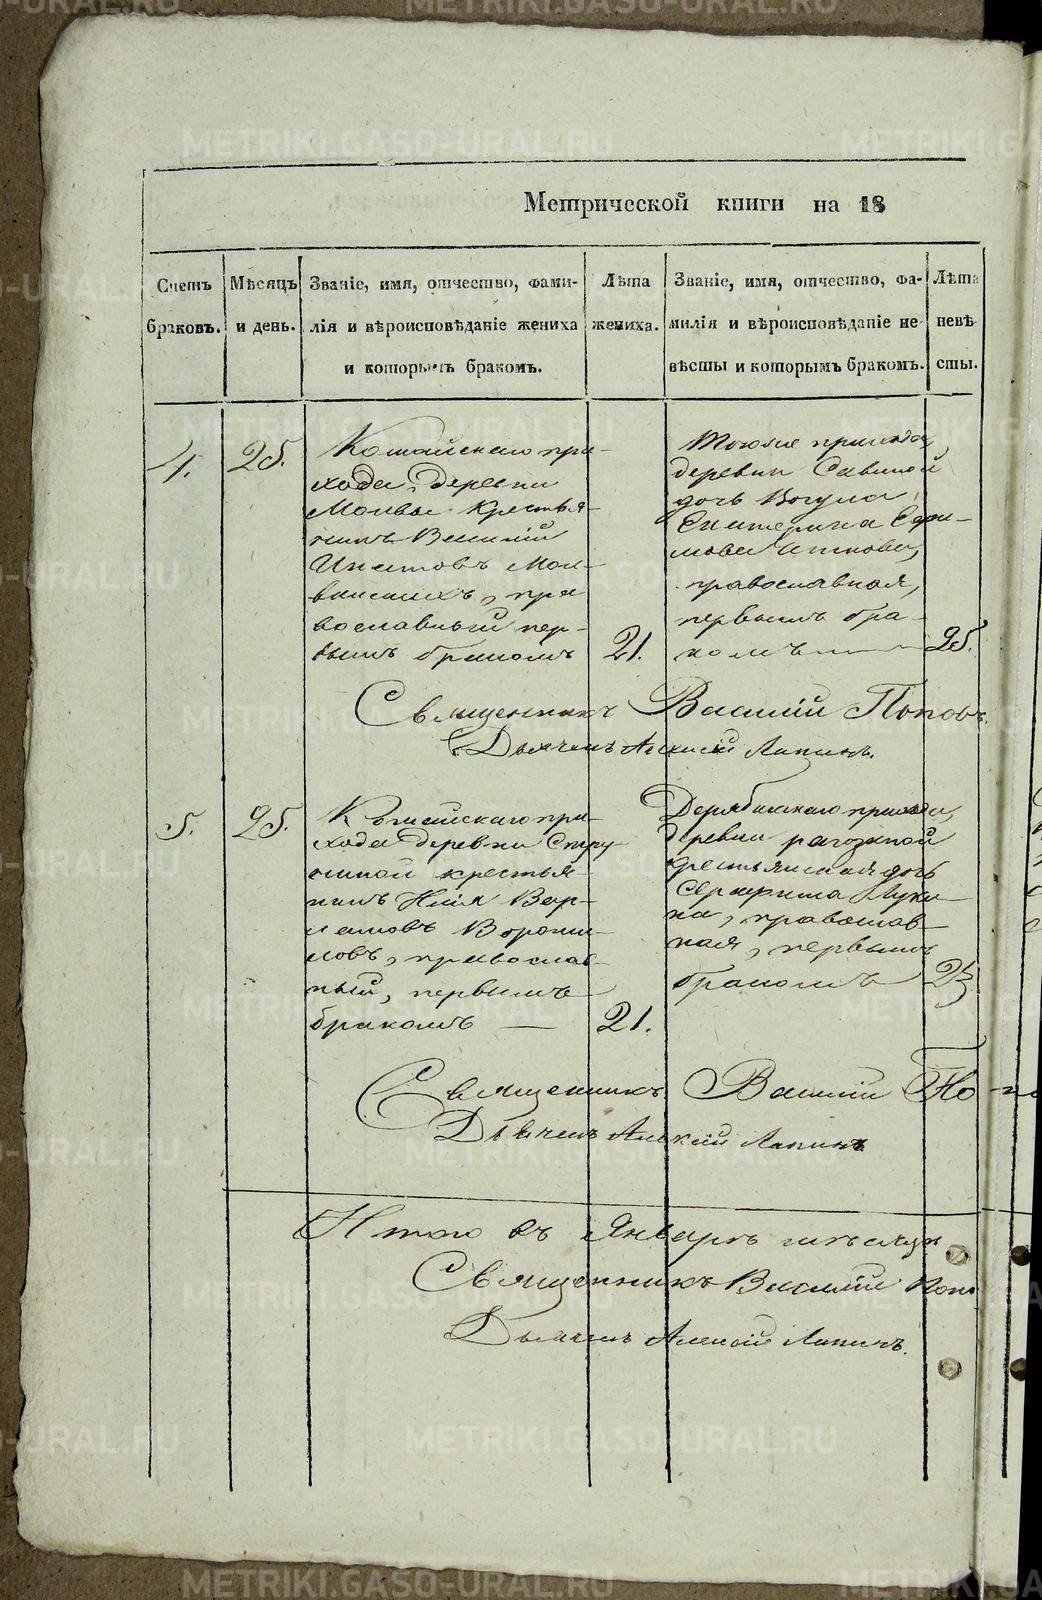 METRIKI.GASO-URAL.RU
Метрической книги на 18
Счетъ браковъ.
Мѣсяцъ и день.
Званіе, имя, отчество, фами-
лія и вѣроисповѣданіе жениха
и которымъ бракомъ.
Лѣта
жениха.
Званіе, имя, отчество, фа-
милія и вѣроисповѣданіе не-
вѣсты и которымъ бракомъ.
Лѣта
невѣ
сты.
4. 25.
Кошайскаго при-
хода, деревни
Молвы крестья-
нинъ Василий
Ипатовъ Мол-
винскихъ, пра
вославный пер-
вымъ бракомъ 21.
Тогоже прихода,
деревни
дочь Вогула
Екатерина Ефи-
мова
православная,
первымъ бра-
комъ 25.
Священникъ Василій Поповъ.
Дьячекъ Алексій Лапинъ.
5. 25.
прихода деревни
крестья-
нинъ Илія Вар-
ламовъ Вороши-
ловъ, православ-
ный, первымъ
бракомъ — 21.
Дерябинскаго прихода,
деревни рагозиной
крестьянская дочь
Луки-
на, православ-
ная, первымъ
бракомъ 23
Священникъ Василій По-по
Дьячекъ Алексій Лапинъ
Итого въ Январѣ мѣсяцѣ
Священникъ Василій Попо
Дьячекъ Алексій Лапинъ.